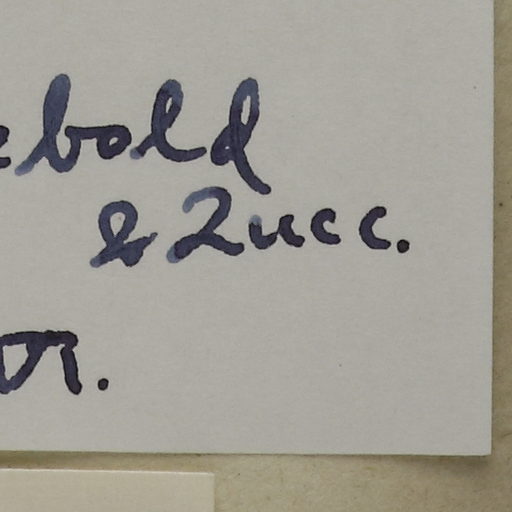 ebold
& Zucc.